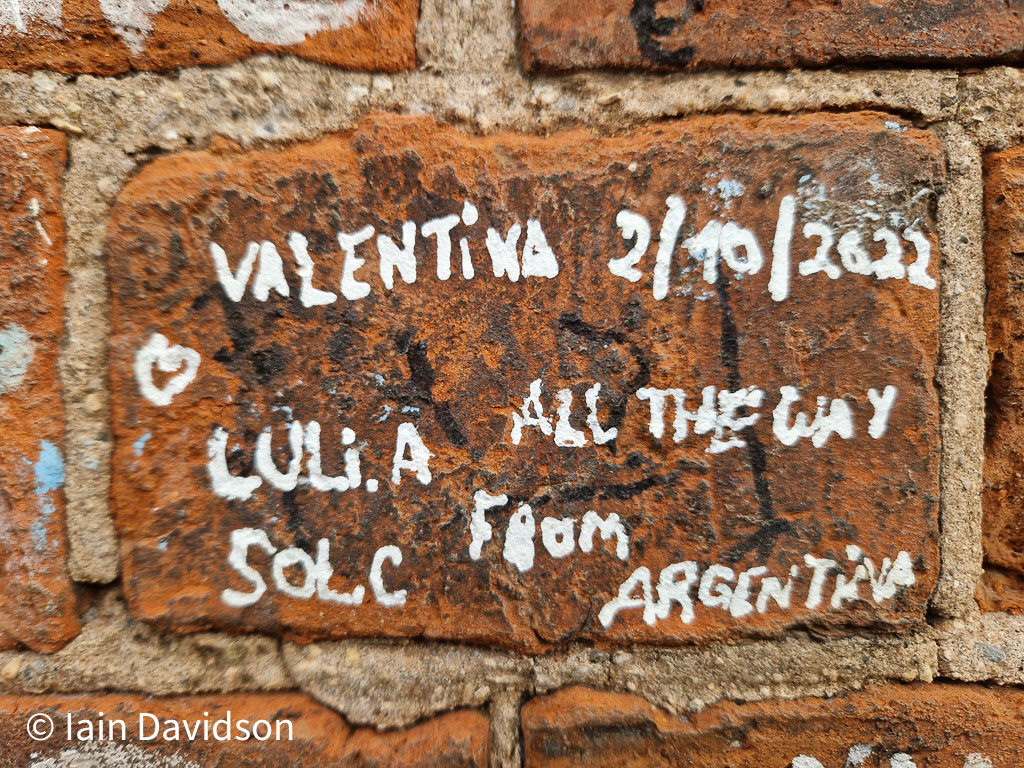 VALENTiNA 2/10/2022
LULi.A ALL THE WAY
SOL.C FROM
ARGENTiNA
© Iain Davidson